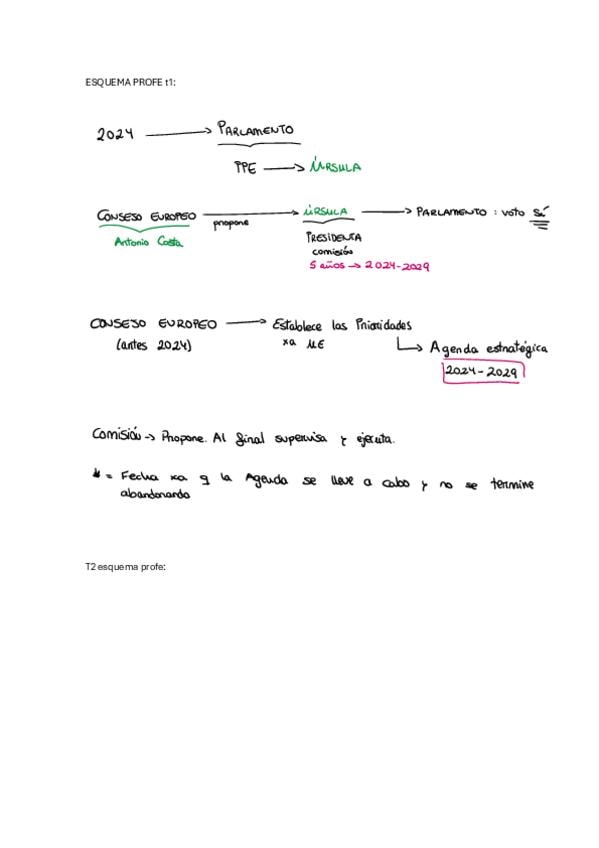 ESQUEMA PROFE t1:
2024 → PARLAMENTO
PPE → ÚRSULA
CONSESO EUROPEO → propone → ÚRSULA → PARLAMENTO : voto SÍ
Antonio Costa
PRESIDENTA
comisión
5 años → 2024-2029
CONSESO EUROPEO → Establece las Prioridades
(antes 2024) xa UE
Agenda estratégica
2024-2029
Comisión → Propone. Al final supervisa y ejecuta.
* = Fecha xa q la Agenda se lleve a cabo y no se termine
abandonando
T2 esquema profe: